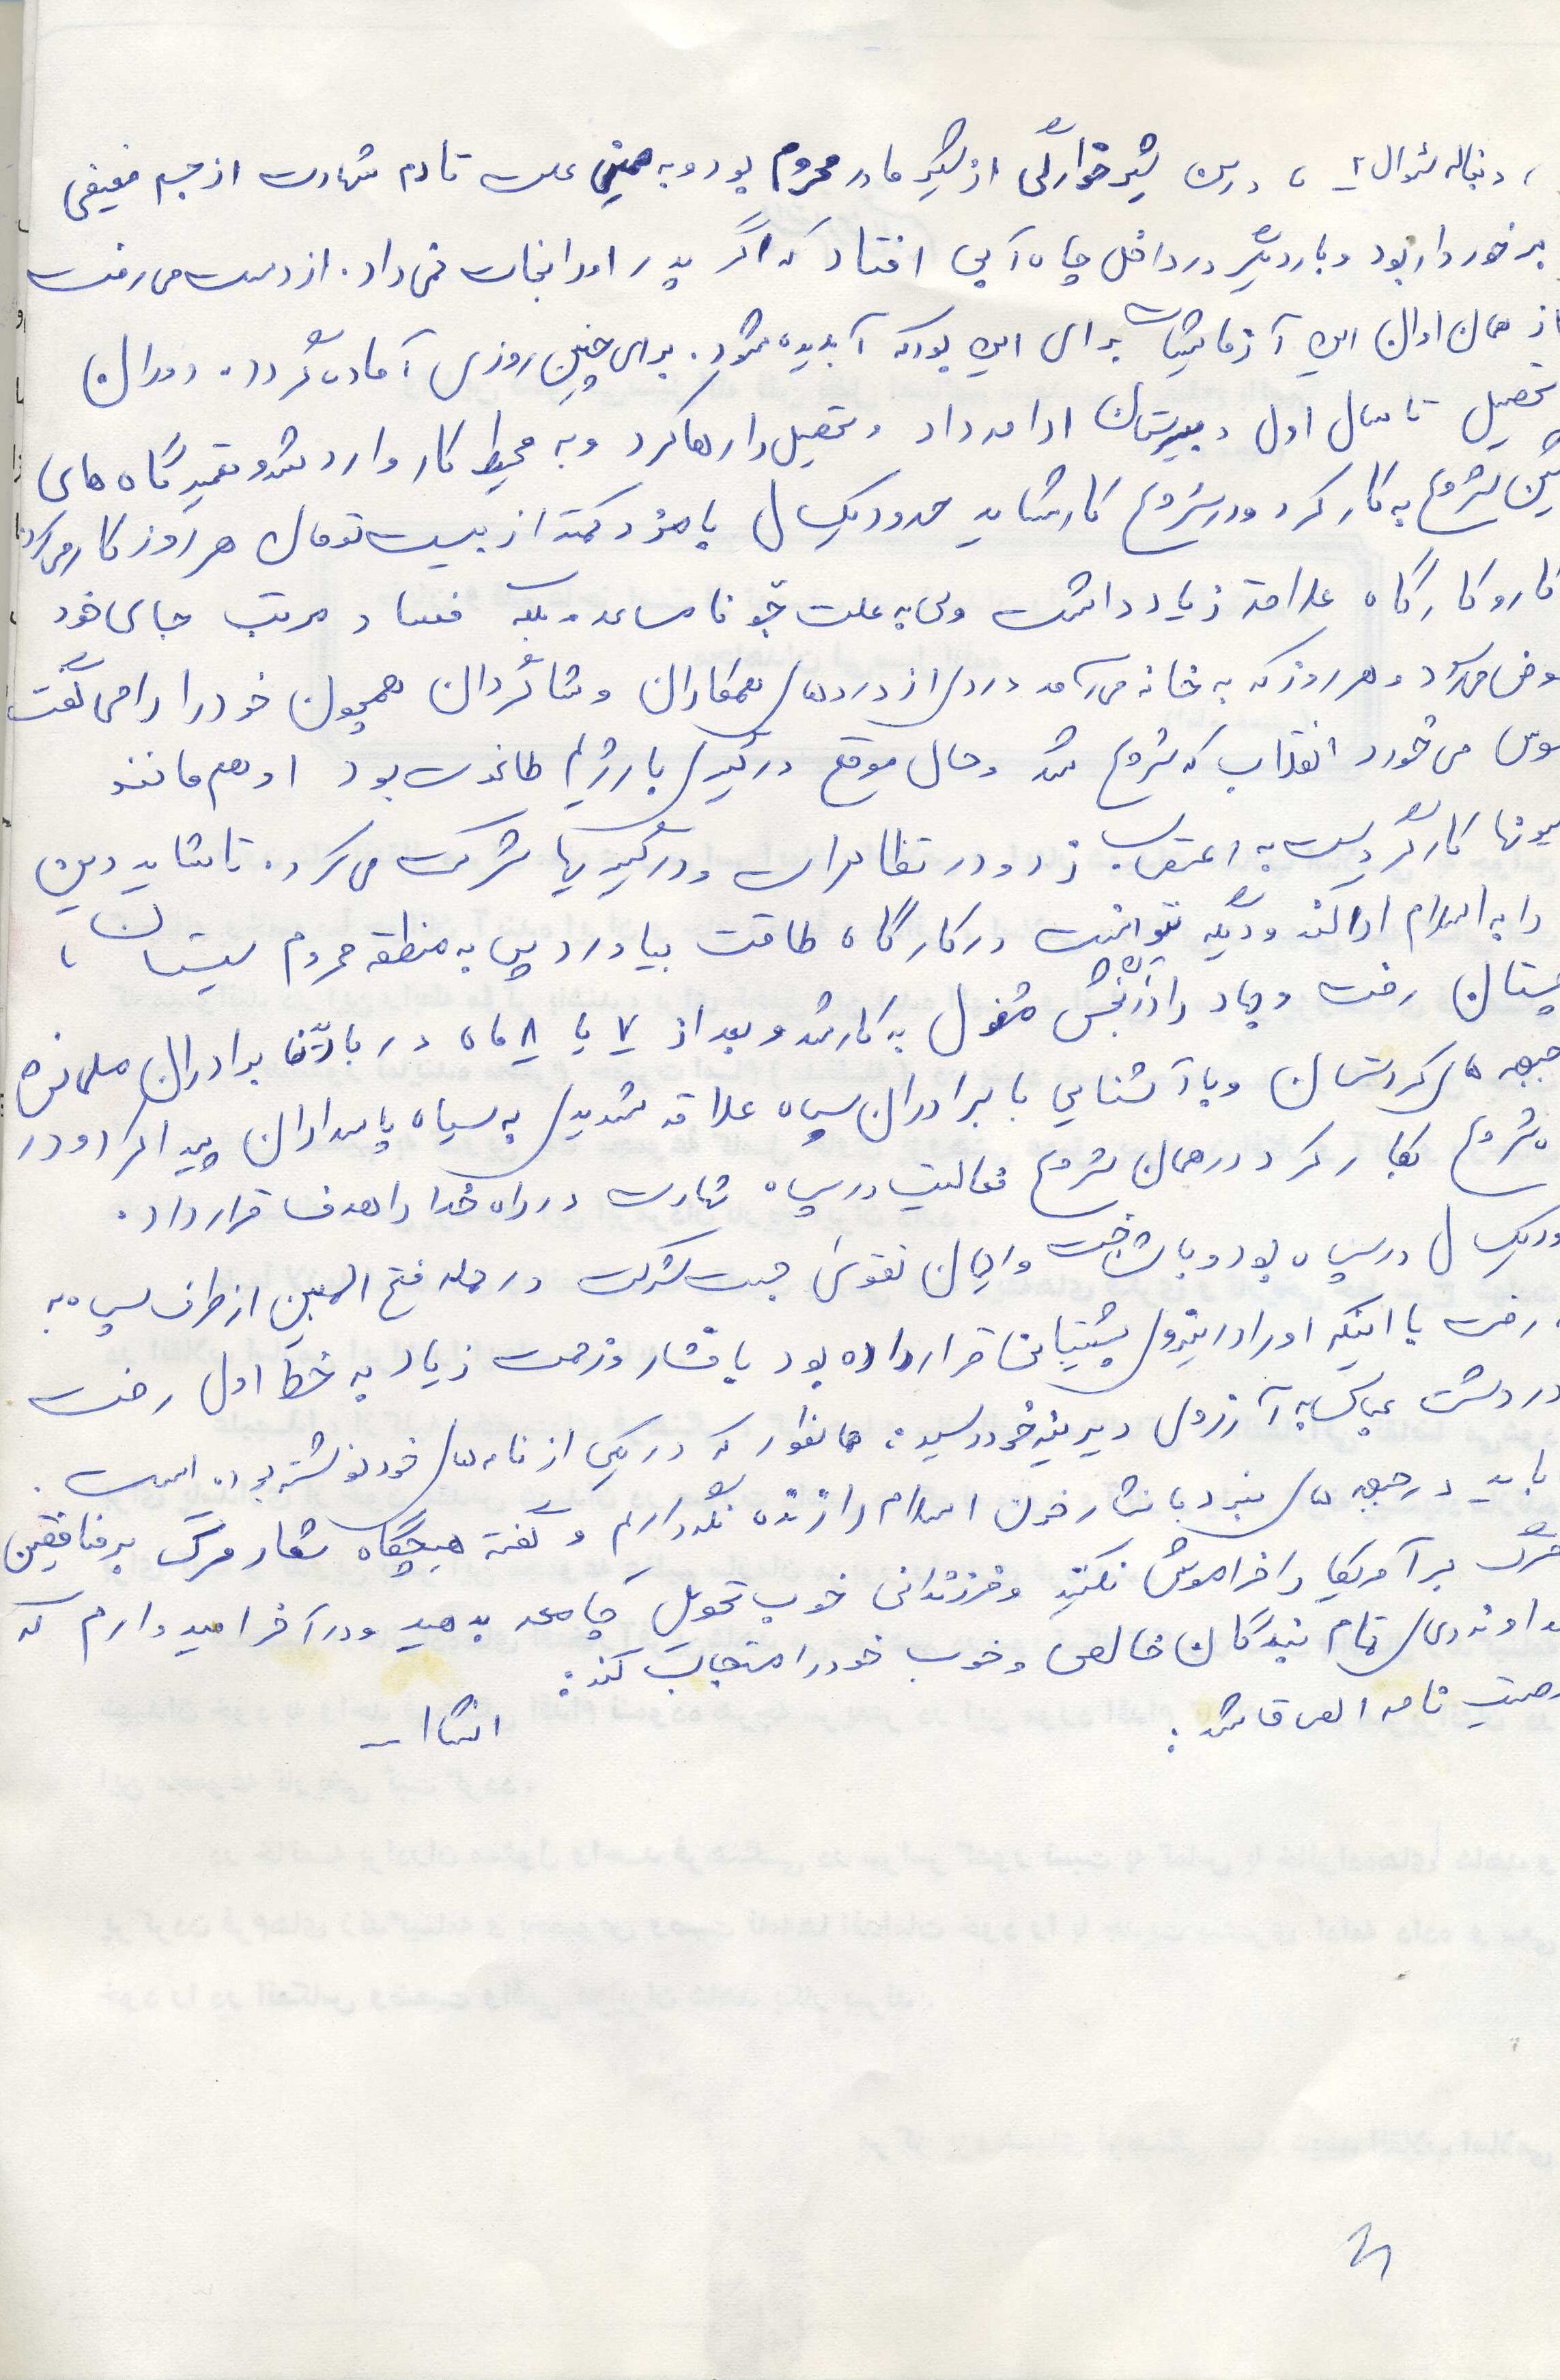 ، دنباله سئوال ۲ ، در سن شیرخوارگی از شیر مادر محروم بود و به همین علت تا دم شهادت از جسم ضعیفی
برخوردار بود و بار دیگر در داخل چاه آبی افتاد که اگر پدر او را نجات نمی داد. از دست می رفت
از همان اوان این آزمایشات برای این بود که آبدیده شود. برای چنین روزی آماده گردد. دوران
تحصیل تا سال اول دبیرستان ادامه داد و تحصیل را رها کرد و به محیط کار وارد شد و تعمیرگاه های
شین شروع به کار کرد و در شروع کار شاید حدود یکسال با مزد کمتر از بیست تومان هر روز کار می کرد
کار و کارگاه علاقه زیاد داشت ولی به علت جو نامساعد و بلکه فساد مرتب جای خود
عوض می کرد و هر روز که به خانه می آمد دردی از دردهای همکاران و شاگردان همچون خود را می گفت
سوس می خورد انقلاب که شروع شد و حال موقع درگیری با رژیم طاغوت بود او هم مانند
یونها کارگر دست به اعتصاب زد و در تظاهرات و درگیریها شرکت می کرد. تا شاید دین
را به اسلام ادا کند و دیگر نتوانست در کارگاه طاقت بیاورد پس به منطقه محروم سیستان ،
چستان رفت و جهاد را گزینش مشغول به کار شد و بعد از ۷ یا ۸ ماه در با برادران
جبهه های کردستان و با آشنایی با برادران سپاه علاقه شدیدی به سپاه پاسداران پیدا کرد و در
ه شروع بکار کرد و در همان شروع فعالیت در سپاه شهادت در راه خدا را هدف قرار داد.
ود یکسال در سپاه بود و با شناخت و ایمان تقوی جهت شرکت در حمله فتح المبین از طرف سپاه به
، رفت با اینکه او را در نیروی پشتیبانی قرار داده بود با فشار و زحمت زیاد به خط اول رفت
در دشت عباس به آرزوی دیرینه خود رسید، همانطور که در یکی از نامه های خود نوشته بود، است.
باید در جبهه های نبرد با نثار خون اسلام را زنده نگه داریم و گفته هیچگاه شعار مرگ بر منافقین
مرگ بر آمریکا را فراموش نکنید و فرزندانی خوب تحویل جامعه بدهید و در آخر امیدوارم که
خداوند دعای تمام بندگان خالص و خوب خود را مستجاب کند:
وصیت نامه الصاق شد: انشاا...
۳